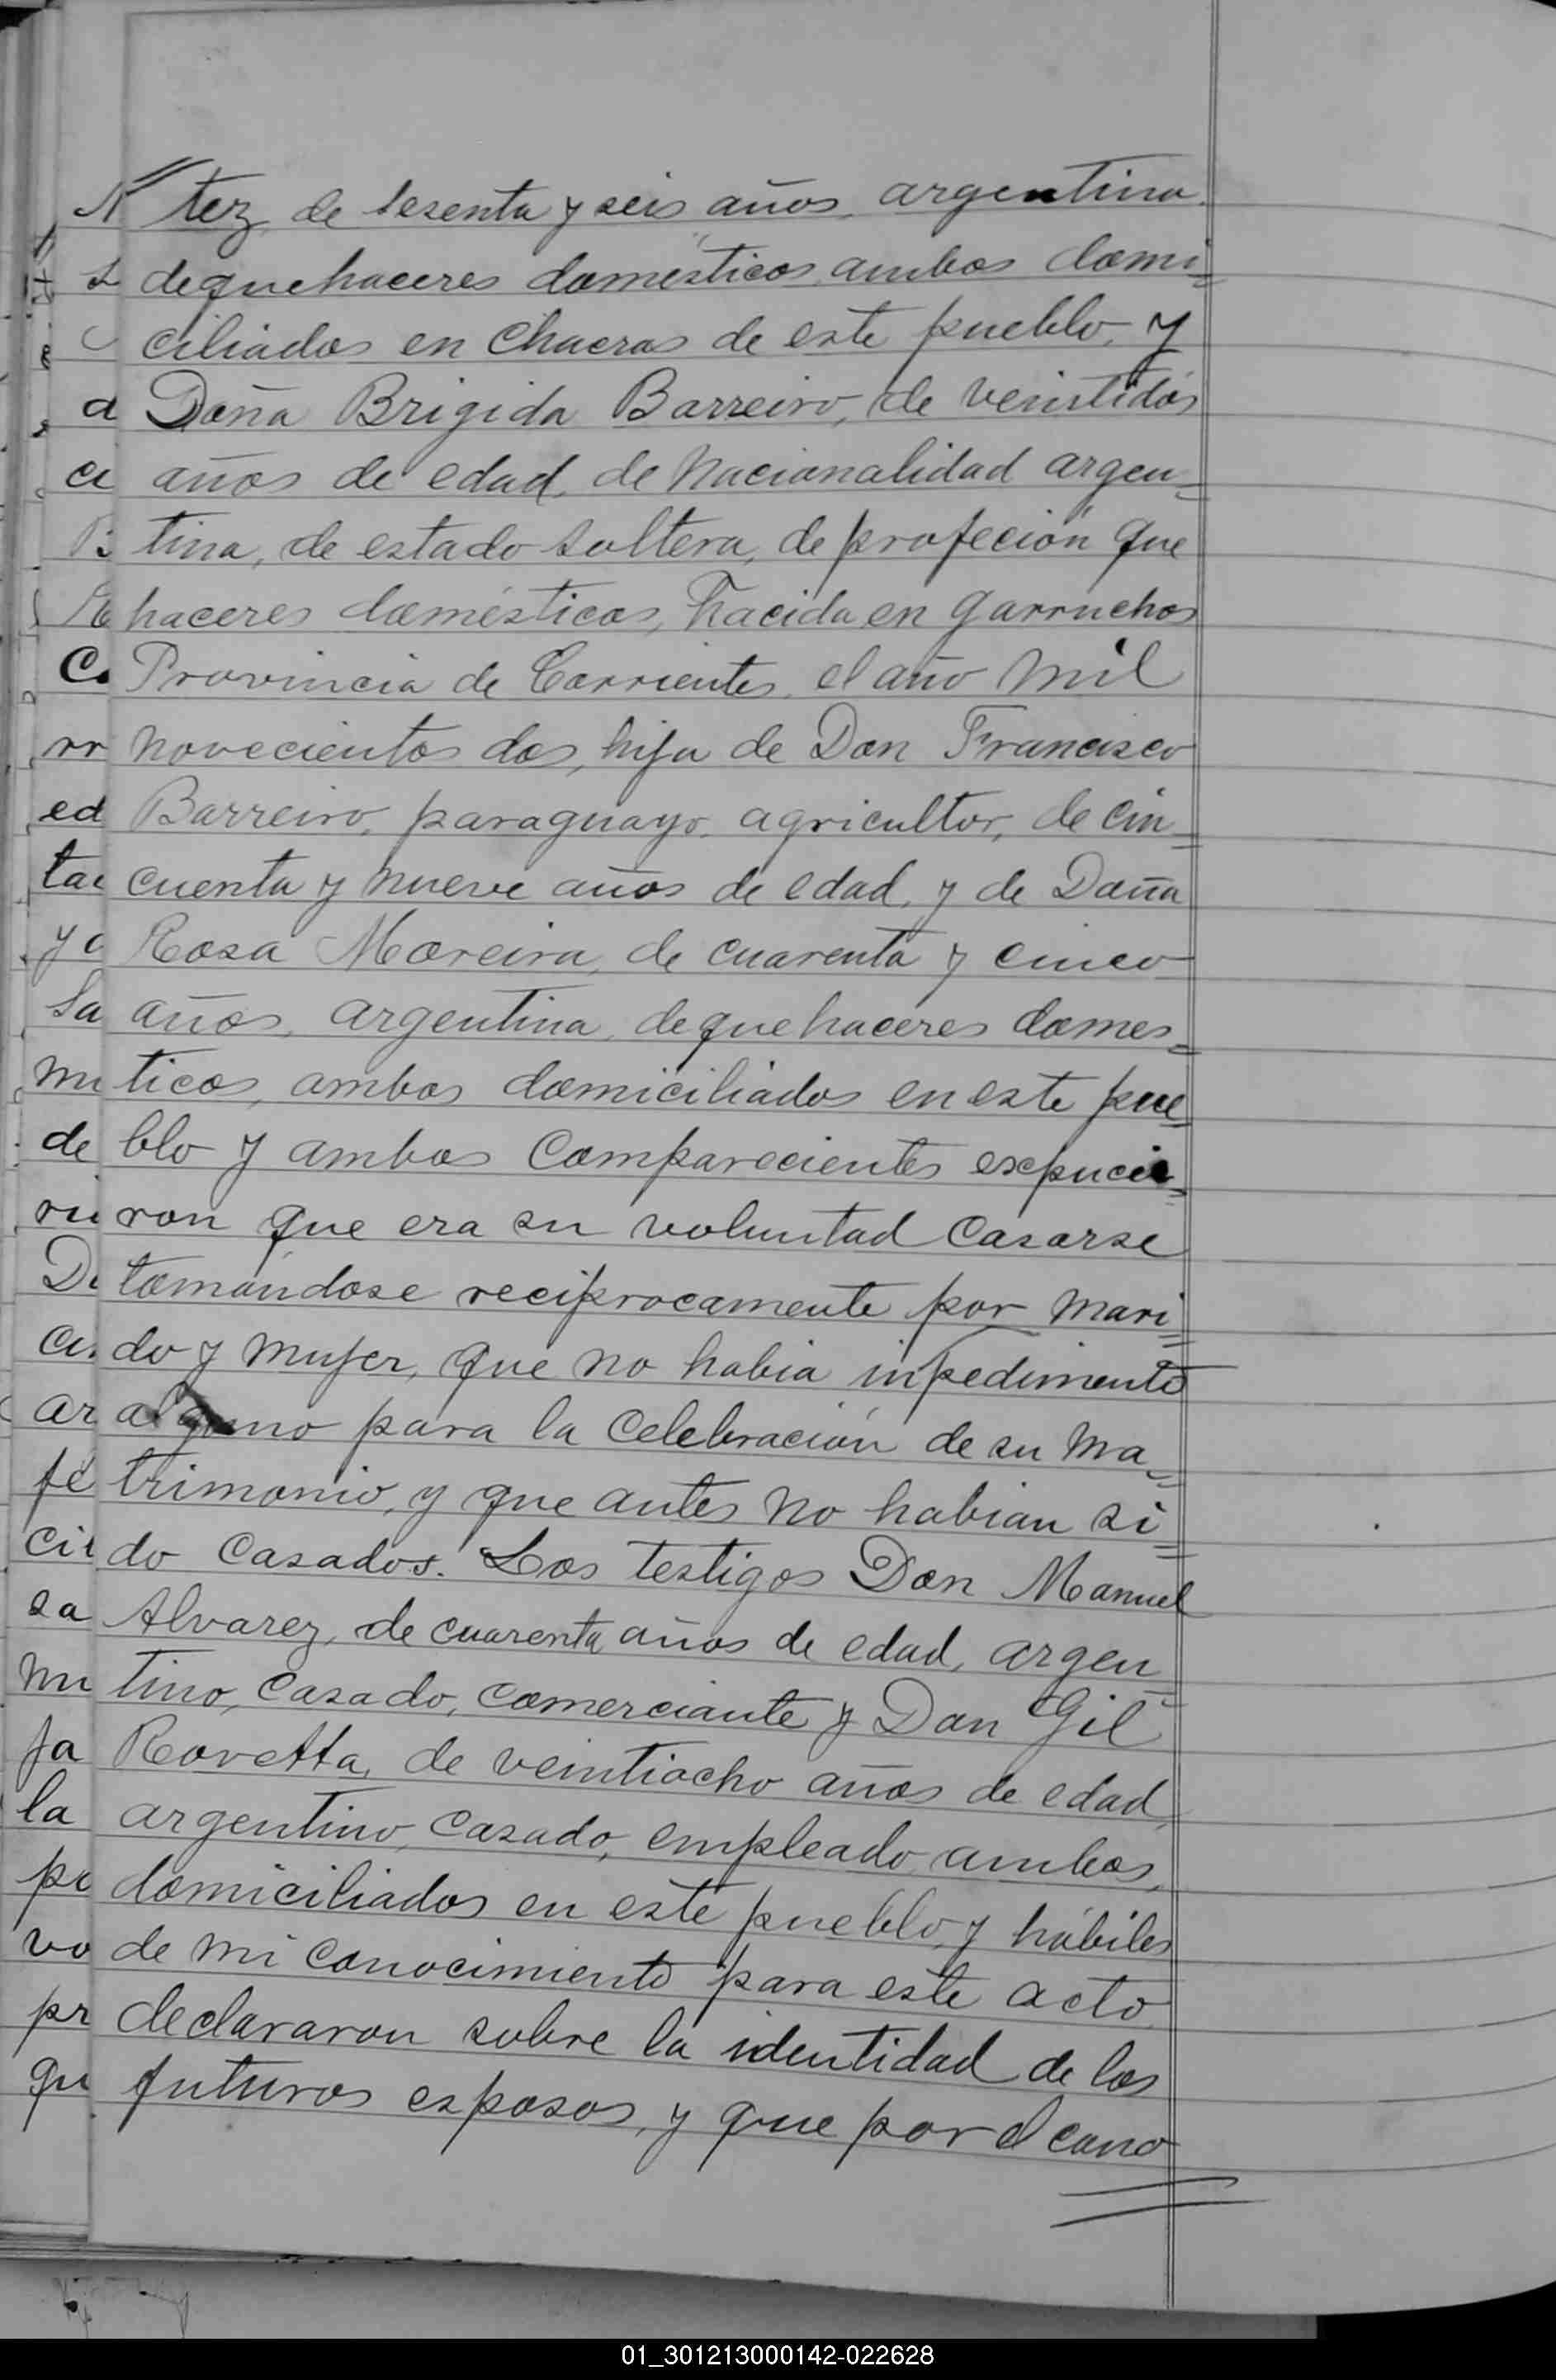 tez, de sesenta y seis años, argentina,
de quehaceres domésticos, ambos domi=
ciliados en chacras de este pueblo, y
Doña Brigida Barreiro, de veintidós
años de edad, de nacionalidad argen=
tina, de estado soltera, de profeción que
haceres domésticos, nacida en Garruchos
Provincia de Corrientes, el año mil
novecientos dos, hija de Don Francisco
Barreiro, paraguayo, agricultor, de cin=
cuenta y nueve años de edad, y de Doña
Rosa Moreira, de cuarenta y cinco
años, argentina, de quehaceres domes=
ticos, ambos domiciliados en este pue=
blo y ambos comparecientes
ron que era su voluntad casarse
tomándose reciprocamente por mari=
do y mujer, que no habia inpedimento
alguno para la celebración de su ma=
trimonio, y que antes no habian si=
do casados. Los testigos Don Manuel
Alvarez, de cuarenta años de edad, argen=
tino, casado, comerciante y Don Gil
Rovetta, de veintiocho años de edad,
argentino, casado, empleado, ambos,
domiciliados en este pueblo, y hábiles
de mi conocimiento para este acto
declararon sobre la identidad de los
futuros esposos, y que por el cono
01_301213000142-022628